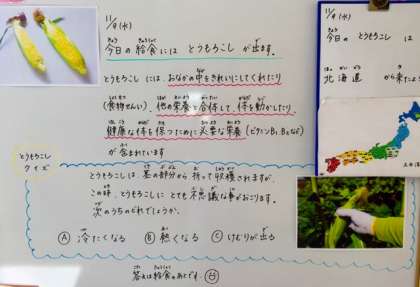 11/9(水)
今日の給食には とうもろこし が出ます。
とうもろこし には、おなかの中をきれいにしてくれたり
(食物せんい)、他の栄養と合体して、体を動かしたり
健康な体を保つために必要な栄養(ビタミンB1,B2など)
が含まれています
とうもろこし
クイズ
とうもろこしは、茎の部分から折って収穫されますが、
この時、とうもろこしに とても不思議な事がおこります。
次のうちのどれでしょうか。
Ⓐ 冷たくなる Ⓑ 熱くなる Ⓒ けむりが出る
答えは給食のあとです。
11/9(水)
今日の とうもろこし は
北海道 から来たよ